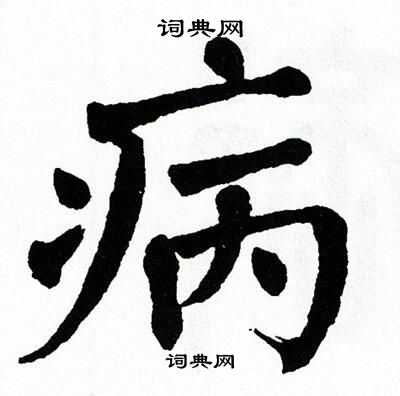 词典网
病
词典网